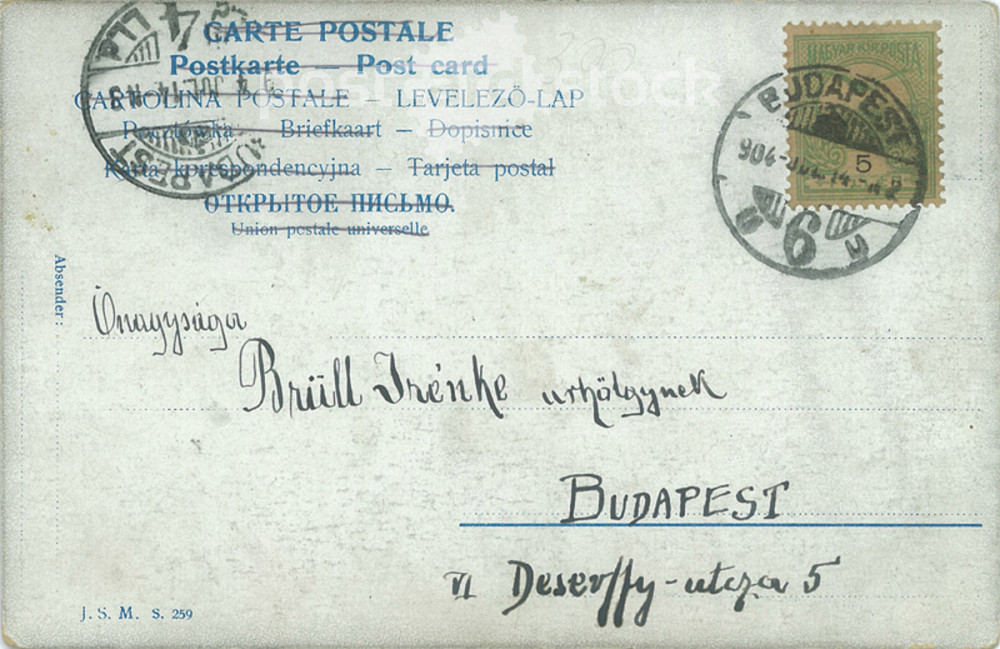 CARTE POSTALE
Postkarte — Post card
CARTOLINA POSTALE – LEVELEZŐ-LAP
Briefkaart – Dopisnice
Karta korespondencyjna – Tarjeta postal
ОТКРЫТОЕ ПИСЬМО.
Union postale universelle
MAGYAR KIR. POSTA
5
BUDAPEST
904
6
BUDAPEST
4
Absender:
Őnagysága
Brüll Irénke urhölgynek
BUDAPEST
VI Desewffy-utcza 5
J. S. M. S. 259